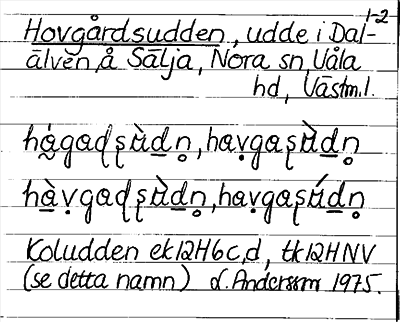 1-2
Hovgårdsudden, udde i Dal-
älven, å Sälja, Nora sn, Våla
hd, Västm.l.
há̰gadʂt̀ʉ̀dn̥, havgaʂʉ̀dn̥
hàvgadʂʉ̀dn̥, havgaʂʉ́dn̥
Koludden ek 12H6c,d, tk 12HNV
(se detta namn) L. Andersson 1975.